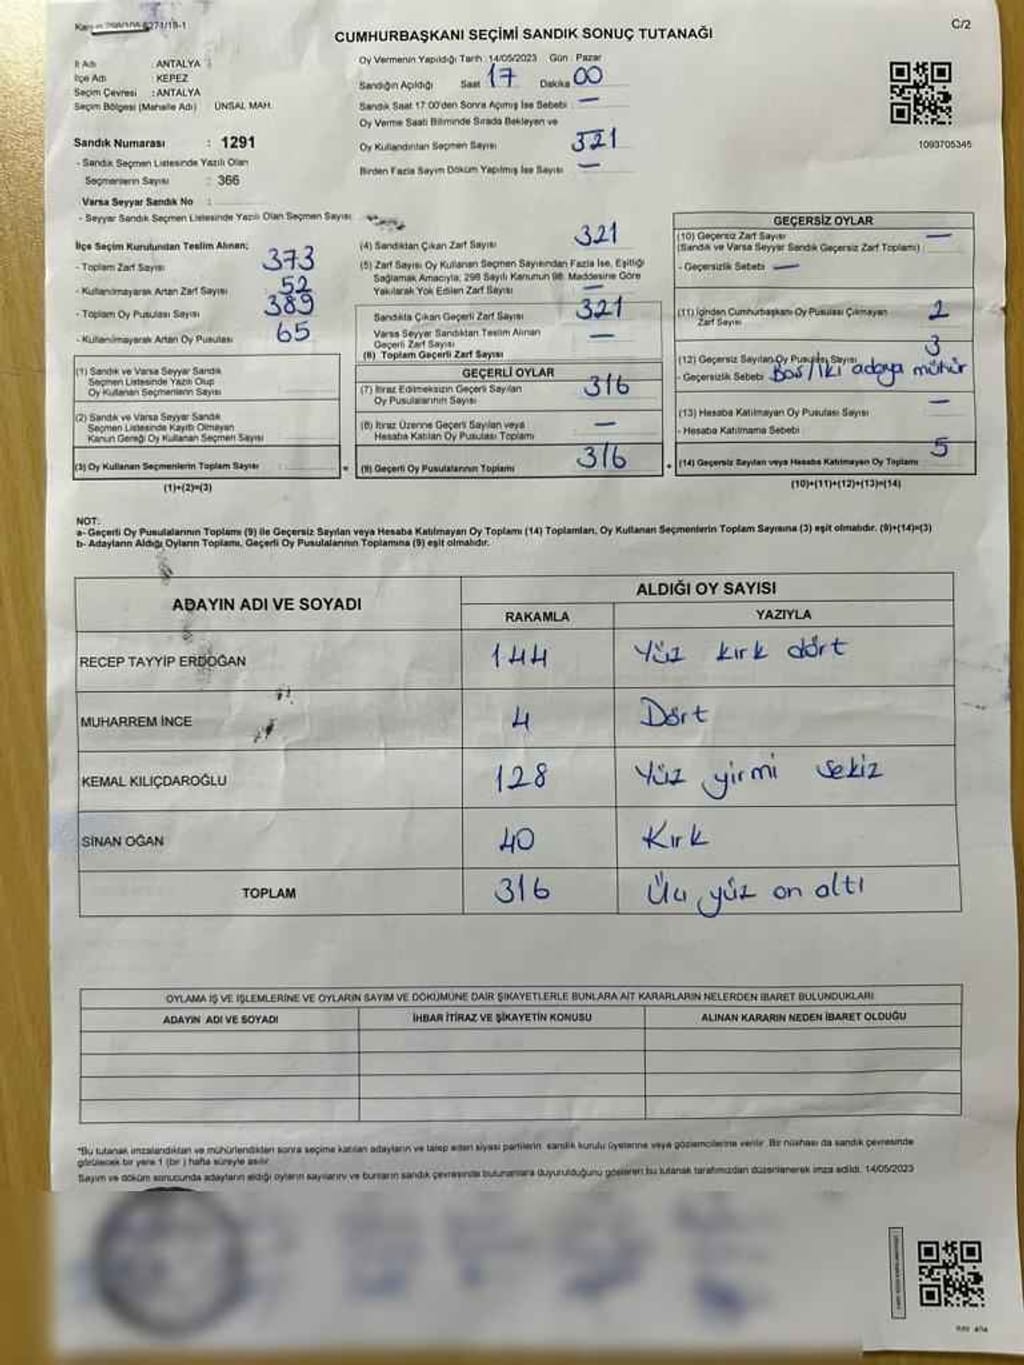 C/2
CUMHURBAŞKANI SEÇİMİ SANDIK SONUÇ TUTANAĞI
İl Adı : ANTALYA
İlçe Adı : KEPEZ
Seçim Çevresi : ANTALYA
Seçim Bölgesi (Mahalle Adı) ÜNSAL MAH.
Sandık Numarası : 1291
- Sandık Seçmen Listesinde Yazılı Olan
Seçmenlerin Sayısı : 366
Varsa Seyyar Sandık No :
- Seyyar Sandık Seçmen Listesinde Yazılı Olan Seçmen Sayısı
Oy Vermenin Yapıldığı Tarih : 14/05/2023 Gün : Pazar
Sandığın Açıldığı Saat 17 Dakika 00
Sandık Saat 17:00'den Sonra Açmış İse Sebebi : —
Oy Verme Saati Bitiminde Sırada Bekleyen ve
Oy Kullandırılan Seçmen Sayısı 321
Birden Fazla Sayım Döküm Yapılmış İse Sayısı —
1093705345
İlçe Seçim Kurulundan Teslim Alınan;
- Toplam Zarf Sayısı 373
- Kullanılmayarak Artan Zarf Sayısı 52
- Toplam Oy Pusulası Sayısı 389
- Kullanılmayarak Artan Oy Pusulası 65
(1) Sandık ve Varsa Seyyar Sandık
Seçmen Listesinde Yazılı Olup
Oy Kullanan Seçmenlerin Sayısı
(2) Sandık ve Varsa Seyyar Sandık
Seçmen Listesinde Kayıtlı Olmayan
Kanun Gereği Oy Kullanan Seçmen Sayısı
(3) Oy Kullanan Seçmenlerin Toplam Sayısı :
(1)+(2)=(3)
(4) Sandıktan Çıkan Zarf Sayısı 321
(5) Zarf Sayısı Oy Kullanan Seçmen Sayısından Fazla İse, Eşitliği
Sağlamak Amacıyla; 298 Sayılı Kanunun 98. Maddesine Göre
Yakılarak Yok Edilen Zarf Sayısı —
Sandıkta Çıkan Geçerli Zarf Sayısı 321
Varsa Seyyar Sandıktan Teslim Alınan
Geçerli Zarf Sayısı —
(6) Toplam Geçerli Zarf Sayısı
GEÇERLİ OYLAR
(7) İtiraz Edilmeksizin Geçerli Sayılan
Oy Pusulalarının Sayısı 316
(8) İtiraz Üzerine Geçerli Sayılan veya
Hesaba Katılan Oy Pusulası Toplamı —
(9) Geçerli Oy Pusulalarının Toplamı 316
GEÇERSİZ OYLAR
(10) Geçersiz Zarf Sayısı —
(Sandık ve Varsa Seyyar Sandık Geçersiz Zarf Toplamı)
- Geçersizlik Sebebi —
(11) İçinden Cumhurbaşkanı Oy Pusulası Çıkmayan
Zarf Sayısı 2
(12) Geçersiz Sayılan Oy Pusulası Sayısı 3
- Geçersizlik Sebebi Boş/İki adaya mühür
(13) Hesaba Katılmayan Oy Pusulası Sayısı —
- Hesaba Katılmama Sebebi
(14) Geçersiz Sayılan veya Hesaba Katılmayan Oy Toplamı 5
(10)+(11)+(12)+(13)=(14)
NOT:
a- Geçerli Oy Pusulalarının Toplamı (9) ile Geçersiz Sayılan veya Hesaba Katılmayan Oy Toplamı (14) Toplamları, Oy Kullanan Seçmenlerin Toplam Sayısına (3) eşit olmalıdır. (9)+(14)=(3)
b- Adayların Aldığı Oyların Toplamı, Geçerli Oy Pusulalarının Toplamına (9) eşit olmalıdır.
ADAYIN ADI VE SOYADI ALDIĞI OY SAYISI
RAKAMLA YAZIYLA
RECEP TAYYİP ERDOĞAN 144 Yüz kırk dört
MUHARREM İNCE 4 Dört
KEMAL KILIÇDAROĞLU 128 Yüz yirmi sekiz
SİNAN OĞAN 40 Kırk
TOPLAM 316 Üç yüz on altı
OYLAMA İŞ VE İŞLEMLERİNE VE OYLARIN SAYIM VE DÖKÜMÜNE DAİR ŞİKAYETLERLE BUNLARA AİT KARARLARIN NELERDEN İBARET BULUNDUKLARI
ADAYIN ADI VE SOYADI İHBAR İTİRAZ VE ŞİKAYETİN KONUSU ALINAN KARARIN NEDEN İBARET OLDUĞU
*Bu tutanak imzalandıktan ve mühürlendikten sonra seçime katılan adayların ve talep eden siyasi partilerin sandık kurulu üyelerine veya gözlemcilerine verilir. Bir nüshası da sandık çevresinde
görülecek bir yere 1 (bir) hafta süreyle asılır.
Sayım ve döküm sonucunda adayların aldığı oyların sayılarını ve bunların sandık çevresinde bulunanlara duyurulduğunu gösteren bu tutanak tarafımızdan düzenlenerek imza edildi. 14/05/2023